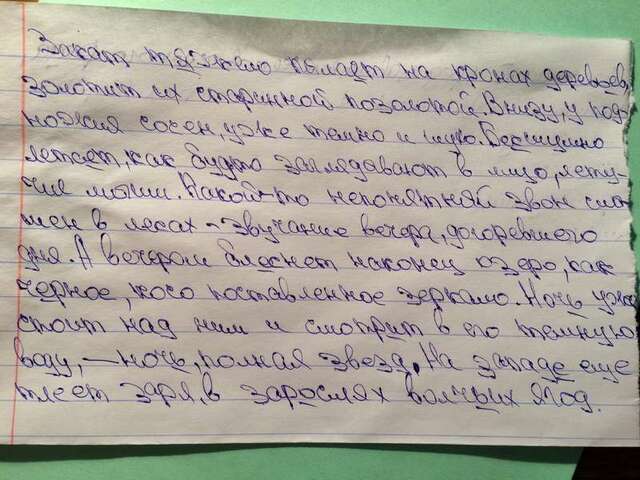 Закат тяжело пылает на кронах деревьев,
золотит их старинной позолотой. Внизу, у под-
ножия сосен, уже темно и глухо. Бесшумно
летают, как будто заглядывают в лицо, лету-
чие мыши. Какой-то непонятный звон слы-
шен в лесах - звучание вечера, догоревшего
дня. А вечером блеснет наконец озеро, как
черное, косо поставленное зеркало. Ночь уже
стоит над ним и смотрит в его темную
воду, — ночь, полная звезд. На западе еще
тлеет заря, в зарослях волчьих ягод.